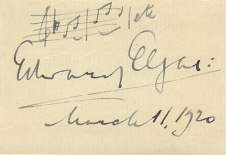 etc
Edward Elgar:
March 11. 1920